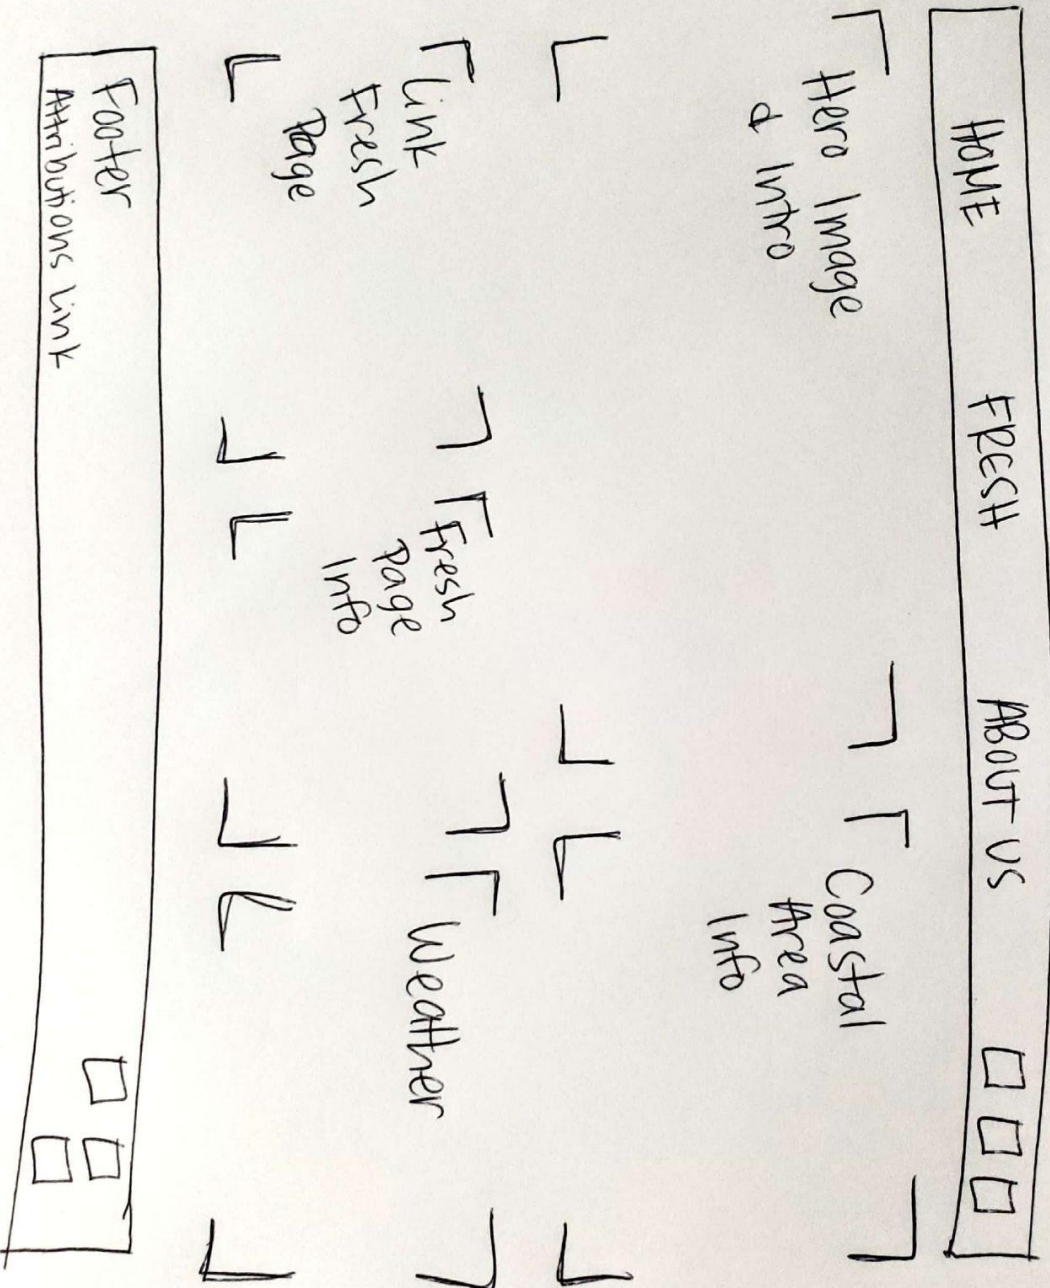 HOME FRESH ABOUT US
Hero Image
& Intro
Coastal
Area
Info
Link
Fresh
Page
Fresh
Page
Info
Weather
Footer
Attributions Link